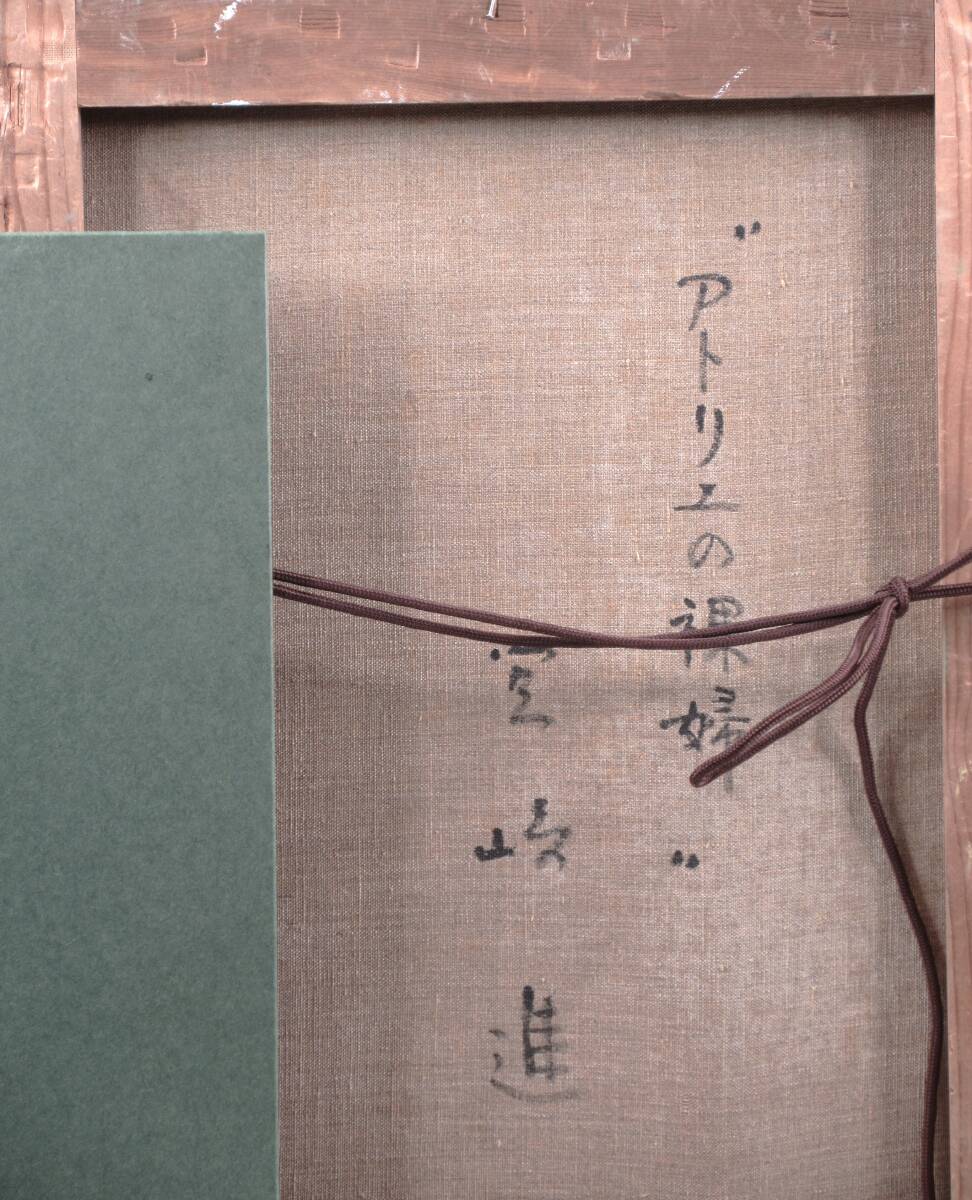 "アトリエの裸婦"
進